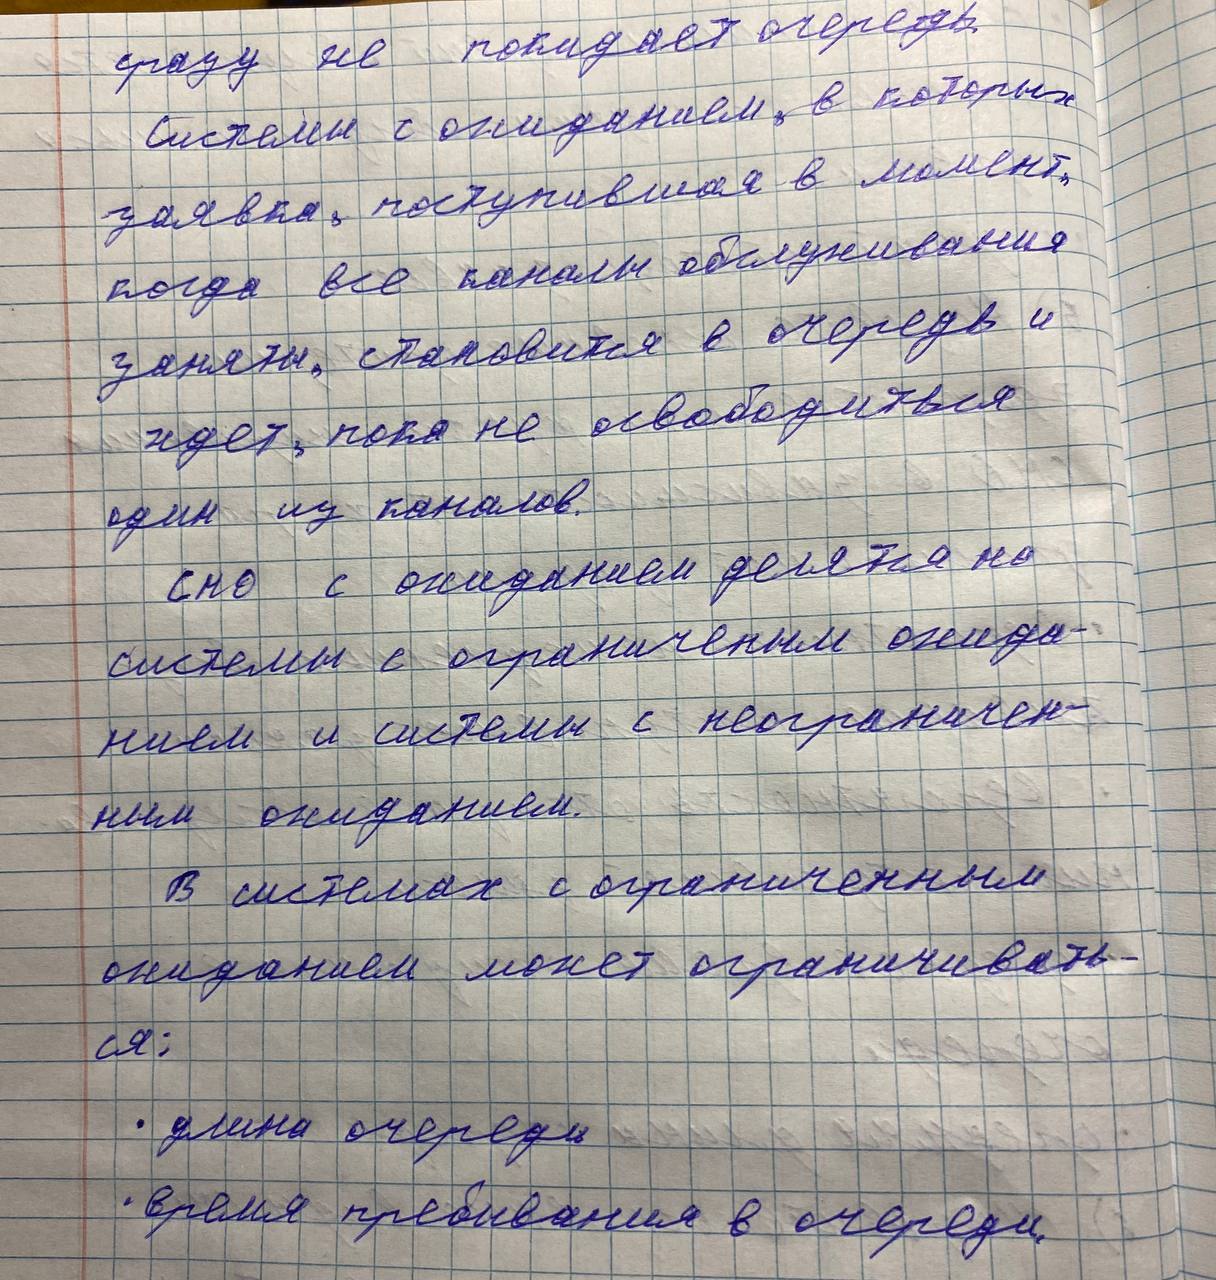 сразу не покидает очередь.
Системы с ожиданием, в которых
заявка, поступившая в момент,
когда все каналы обслуживания
заняты, становится в очередь и
ждет, пока не освободиться
один из каналов.
СМО с ожиданием делятся на
системы с ограниченым ожида-
нием и системы с неограничен-
ным ожиданием.
В системах с ограниченным
ожиданием может ограничивать-
ся:
· длина очереди
· время пребивания в очереди.